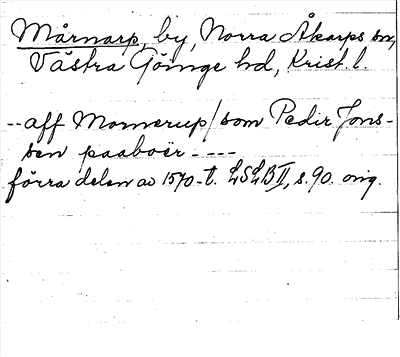 Mårnarp, by, Norra Åkarps sn,
Västra Göinge hd, Krist. l.
-- aff Mornerup / som Pedir Jons-
sen paaboer ----
förra delen av 1570-t. LSLB II, s. 90. orig.